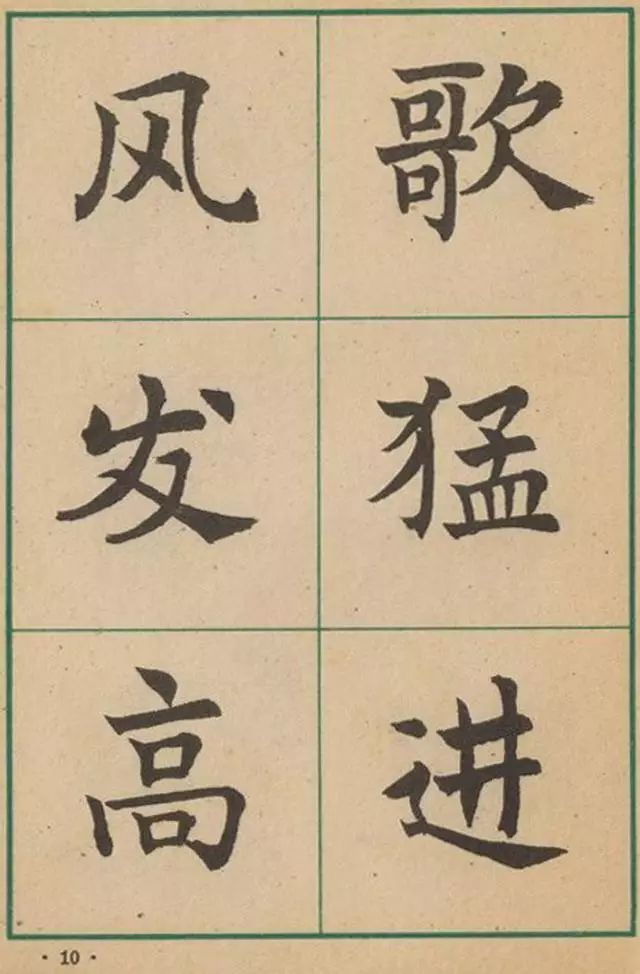 风发高
歌猛进
· 10 ·